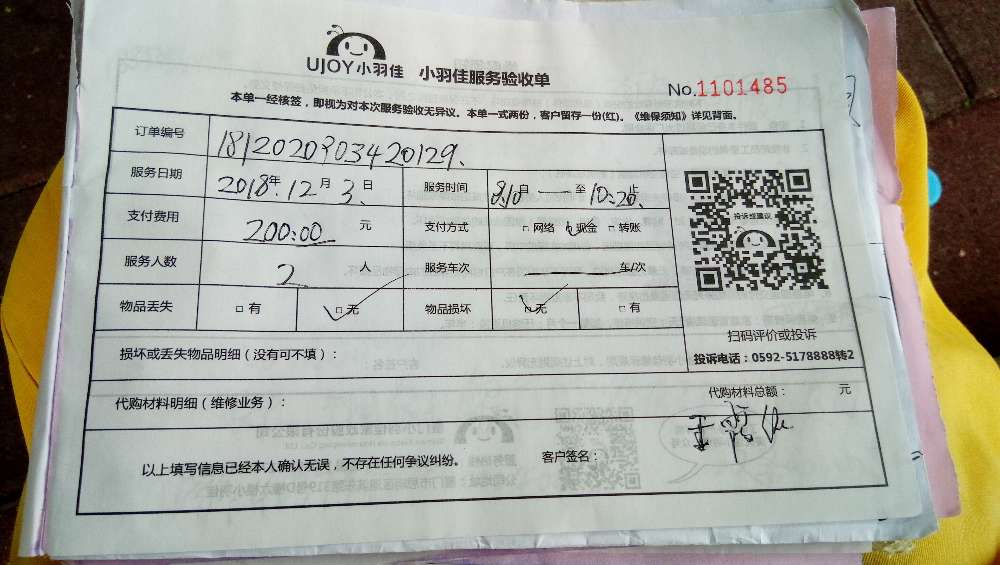 UJOY小羽佳 小羽佳服务验收单
No.1101485
本单一经核签，即视为对本次服务验收无异议。本单一式两份，客户留存一份(红)。《维保须知》详见背面。
订单编号 18120209034420129
服务日期 2018年12月3日 服务时间 8:10自——至10:20止
支付费用 200:00元 支付方式 □网络 □现金 □转账
投诉或建议
服务人数 2人 服务车次 车/次
物品丢失 □有 □无 物品损坏 □无 □有
扫码评价或投诉
投诉电话：0592-5178888转2
损坏或丢失物品明细（没有可不填）：
代购材料明细（维修业务）： 代购材料总额： 元
以上填写信息已经本人确认无误，不存在任何争议纠纷。 客户签名：